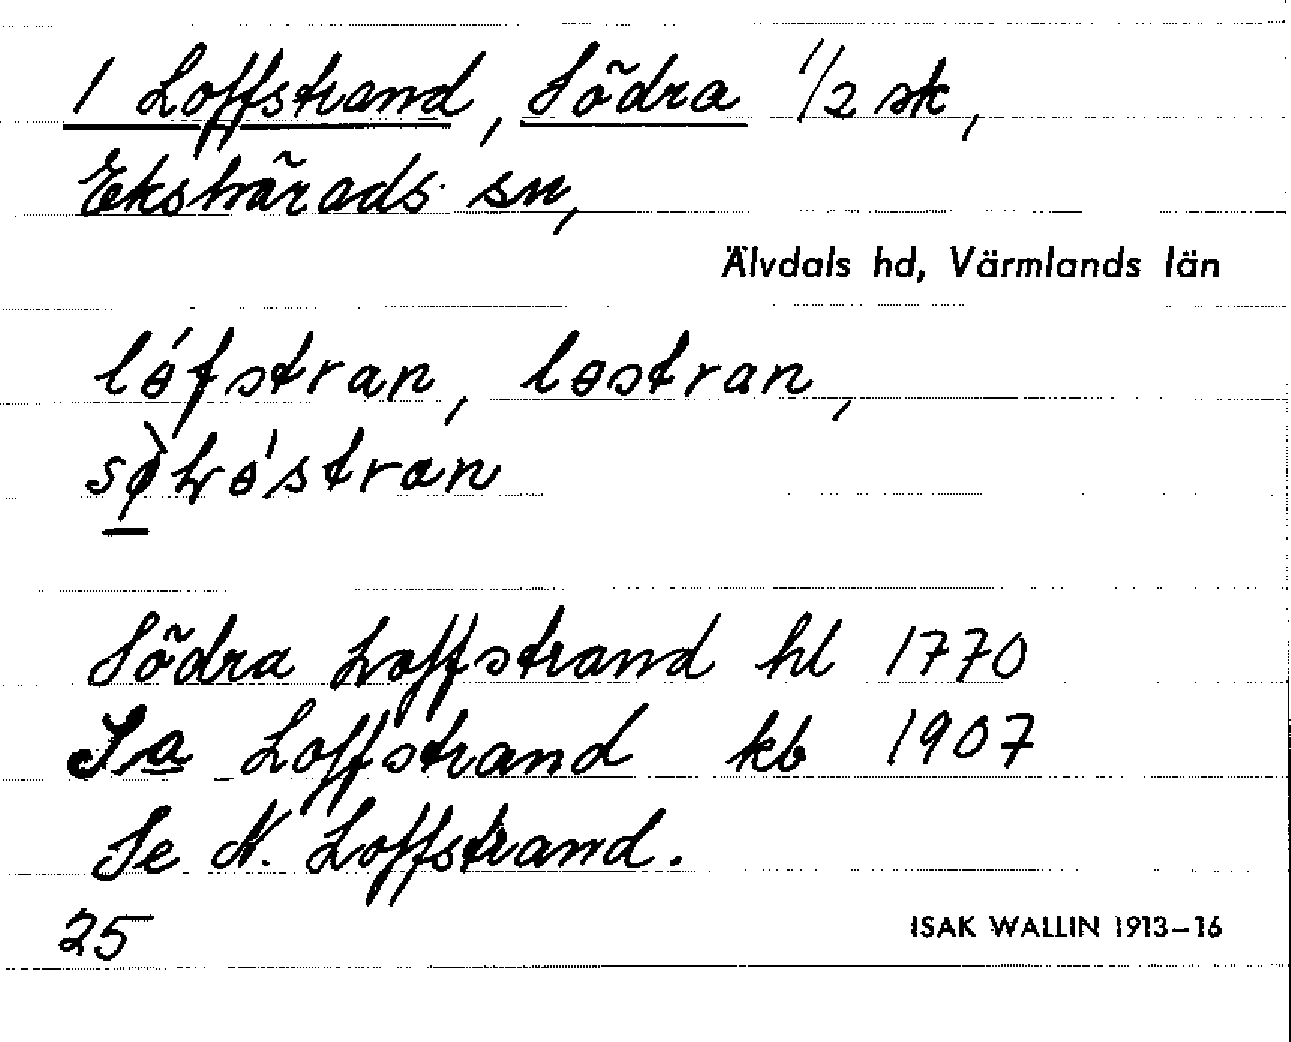 1 Loffstrand, Södra 1/2 sk,
Ekshärads sn,
Älvdals hd, Värmlands län
lɵ́fstran, lɵstran,
Södra Loffstrand hl 1770
Sa Loffstrand kb 1907
Se N. Loffstrand.
25
ISAK WALLIN 1913–16